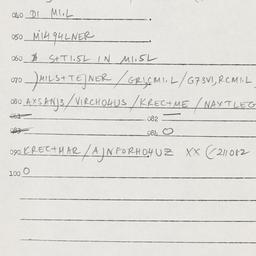 040 DI MI.L
050 MIH94LNER
060 S+TI.5L IN MI.5L
070 )MILS+TEJNER / GRI,CMI.L / G73VI,RCMI.L
080 AXSANJ3 / VIRCHO4US / KREC+ME / NAXTLEG
081
082 —
083
084 O
090 KREC+MAR / AJNFORHO4UZ XX (/211082
100 O